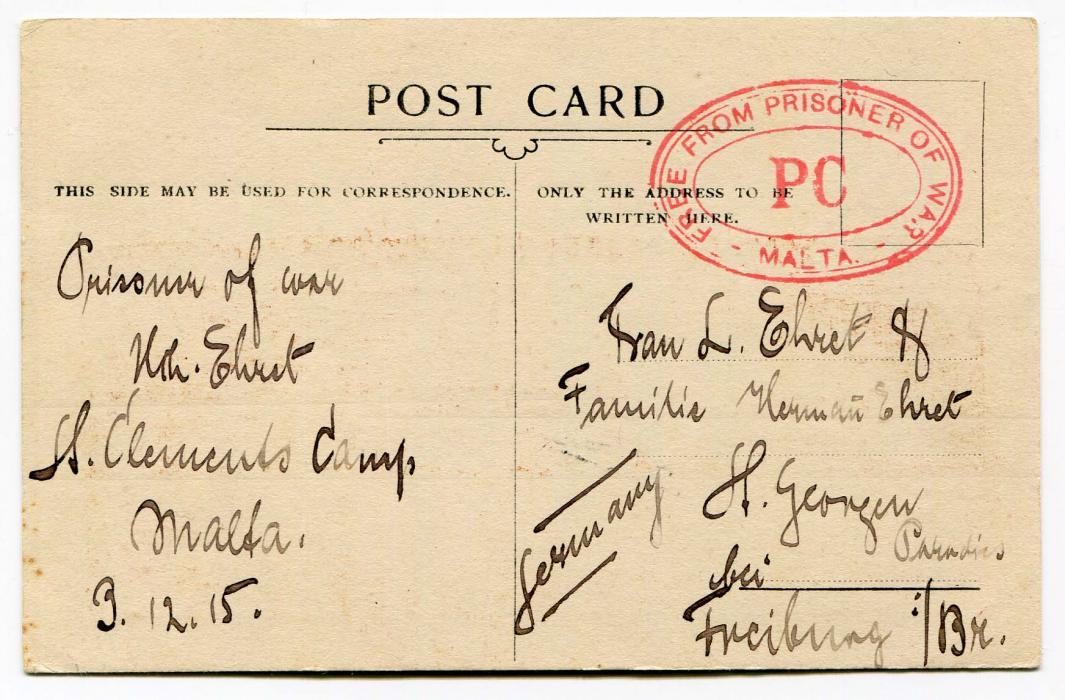 POST CARD
FREE FROM PRISONER OF WAR
PC
- MALTA. -
THIS SIDE MAY BE USED FOR CORRESPONDENCE.
ONLY THE ADDRESS TO BE
WRITTEN HERE.
Prisoner of war
Ehret
St. Clements Camp
Malta.
3. 12. 15.
Frau L. Ehret &
Familie Herman̄ Ehret
St. Georgen
Paradies
bei
Freiburg i/Br.
Germany.